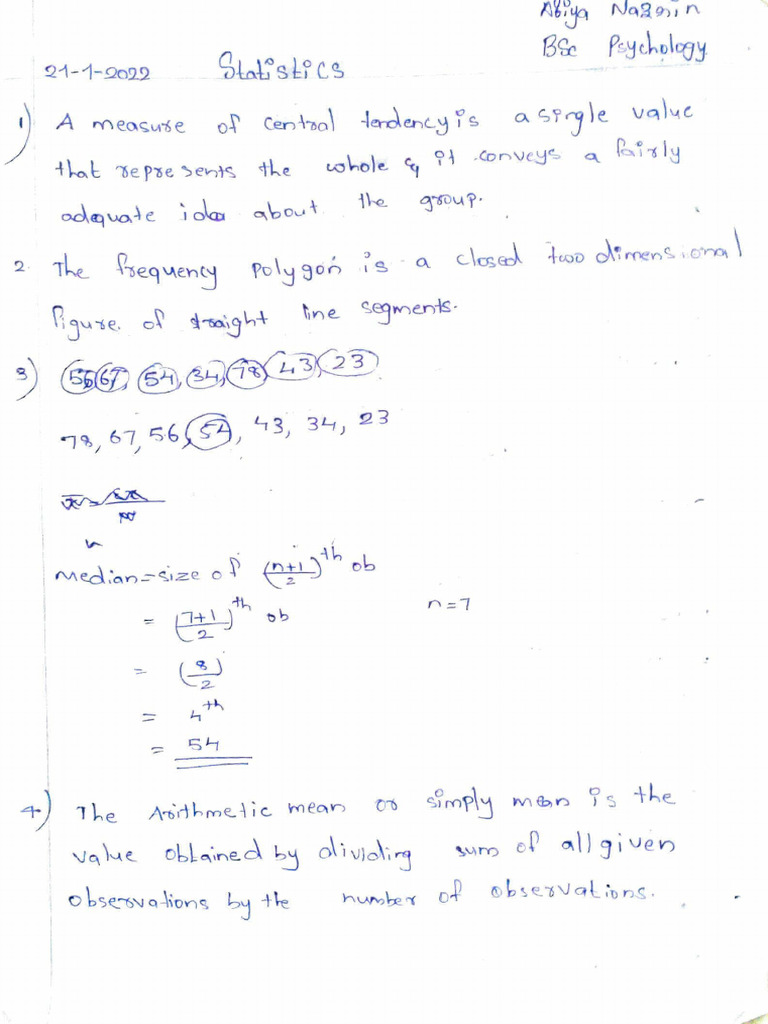 Abiya Nazrin
BSc Psychology
21-1-2022 Statistics
1) A measure of central tendency is a single value
that represents the whole & it conveys a fairly
adequate idea about the group.
2. The frequency polygon is a closed two dimensional
figure of straight line segments.
3) 56, 67, 54, 34, 78, 43, 23
78, 67, 56, 54, 43, 34, 23
Median = size of (n+1/2)th ob
= (7+1/2)th ob n=7
= (8/2)
= 4th
= 54
4) The Arithmetic mean or simply mean is the
value obtained by dividing sum of all given
observations by the number of observations.